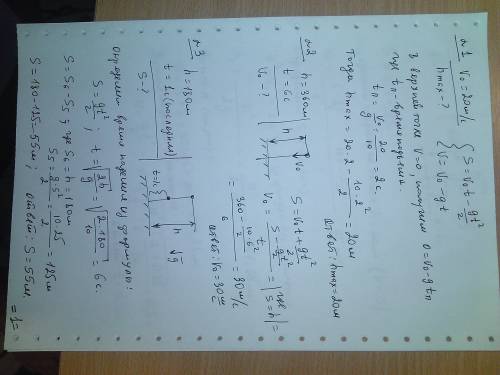 №1 V₀ = 20м/с
hmax - ?
{ S = V₀t - gt²/2
V = V₀ - gt
В верхней точке V = 0, получим 0 = V₀ - gtп
где tп - время подъема.
tп = V₀/g = 20/10 = 2с.
Тогда hmax = 20·2 - 10·2²/2 = 20м
Ответ: hmax = 20м
№2 h = 360м
t = 6с
V₀ - ?
h V₀
S = V₀t + gt²/2
V₀ = (S - gt²/2)/t = | где S = h | =
= (360 - 10·6²/2)/6 = 30м/с
Ответ: V₀ = 30м/с
№3 h = 180м
t = 1с (последняя)
S - ?
t=1с { h g
Определим время падения из формулы:
S = gt²/2; t = √(2h/g) = √(2·180/10) = 6с.
S = S₆ - S₅, где S₆ = h = 180м
S₅ = gS²/2 = 10·25/2 = 125м
S = 180 - 125 = 55м; Ответ: S = 55м.
=1=